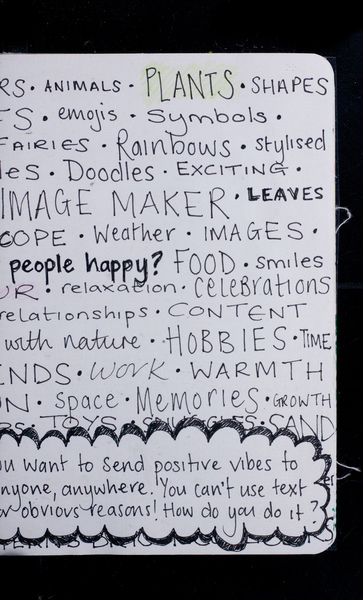 RS · ANIMALS · PLANTS · SHAPES
ES · emojis · Symbols ·
FAIRIES · Rainbows · stylised
les · Doodles · EXCITING ·
IMAGE MAKER · LEAVES
COPE · Weather · IMAGES ·
people happy? FOOD · smiles
UR · relaxation · celebrations
relationships · CONTENT
with nature · HOBBIES · TIME
ENDS · work · WARMTH
ON · Space · Memories · GROWTH
TOYS · SAND
ou want to send positive vibes to
nyone, anywhere. You can't use text
or obvious reasons! How do you do it?